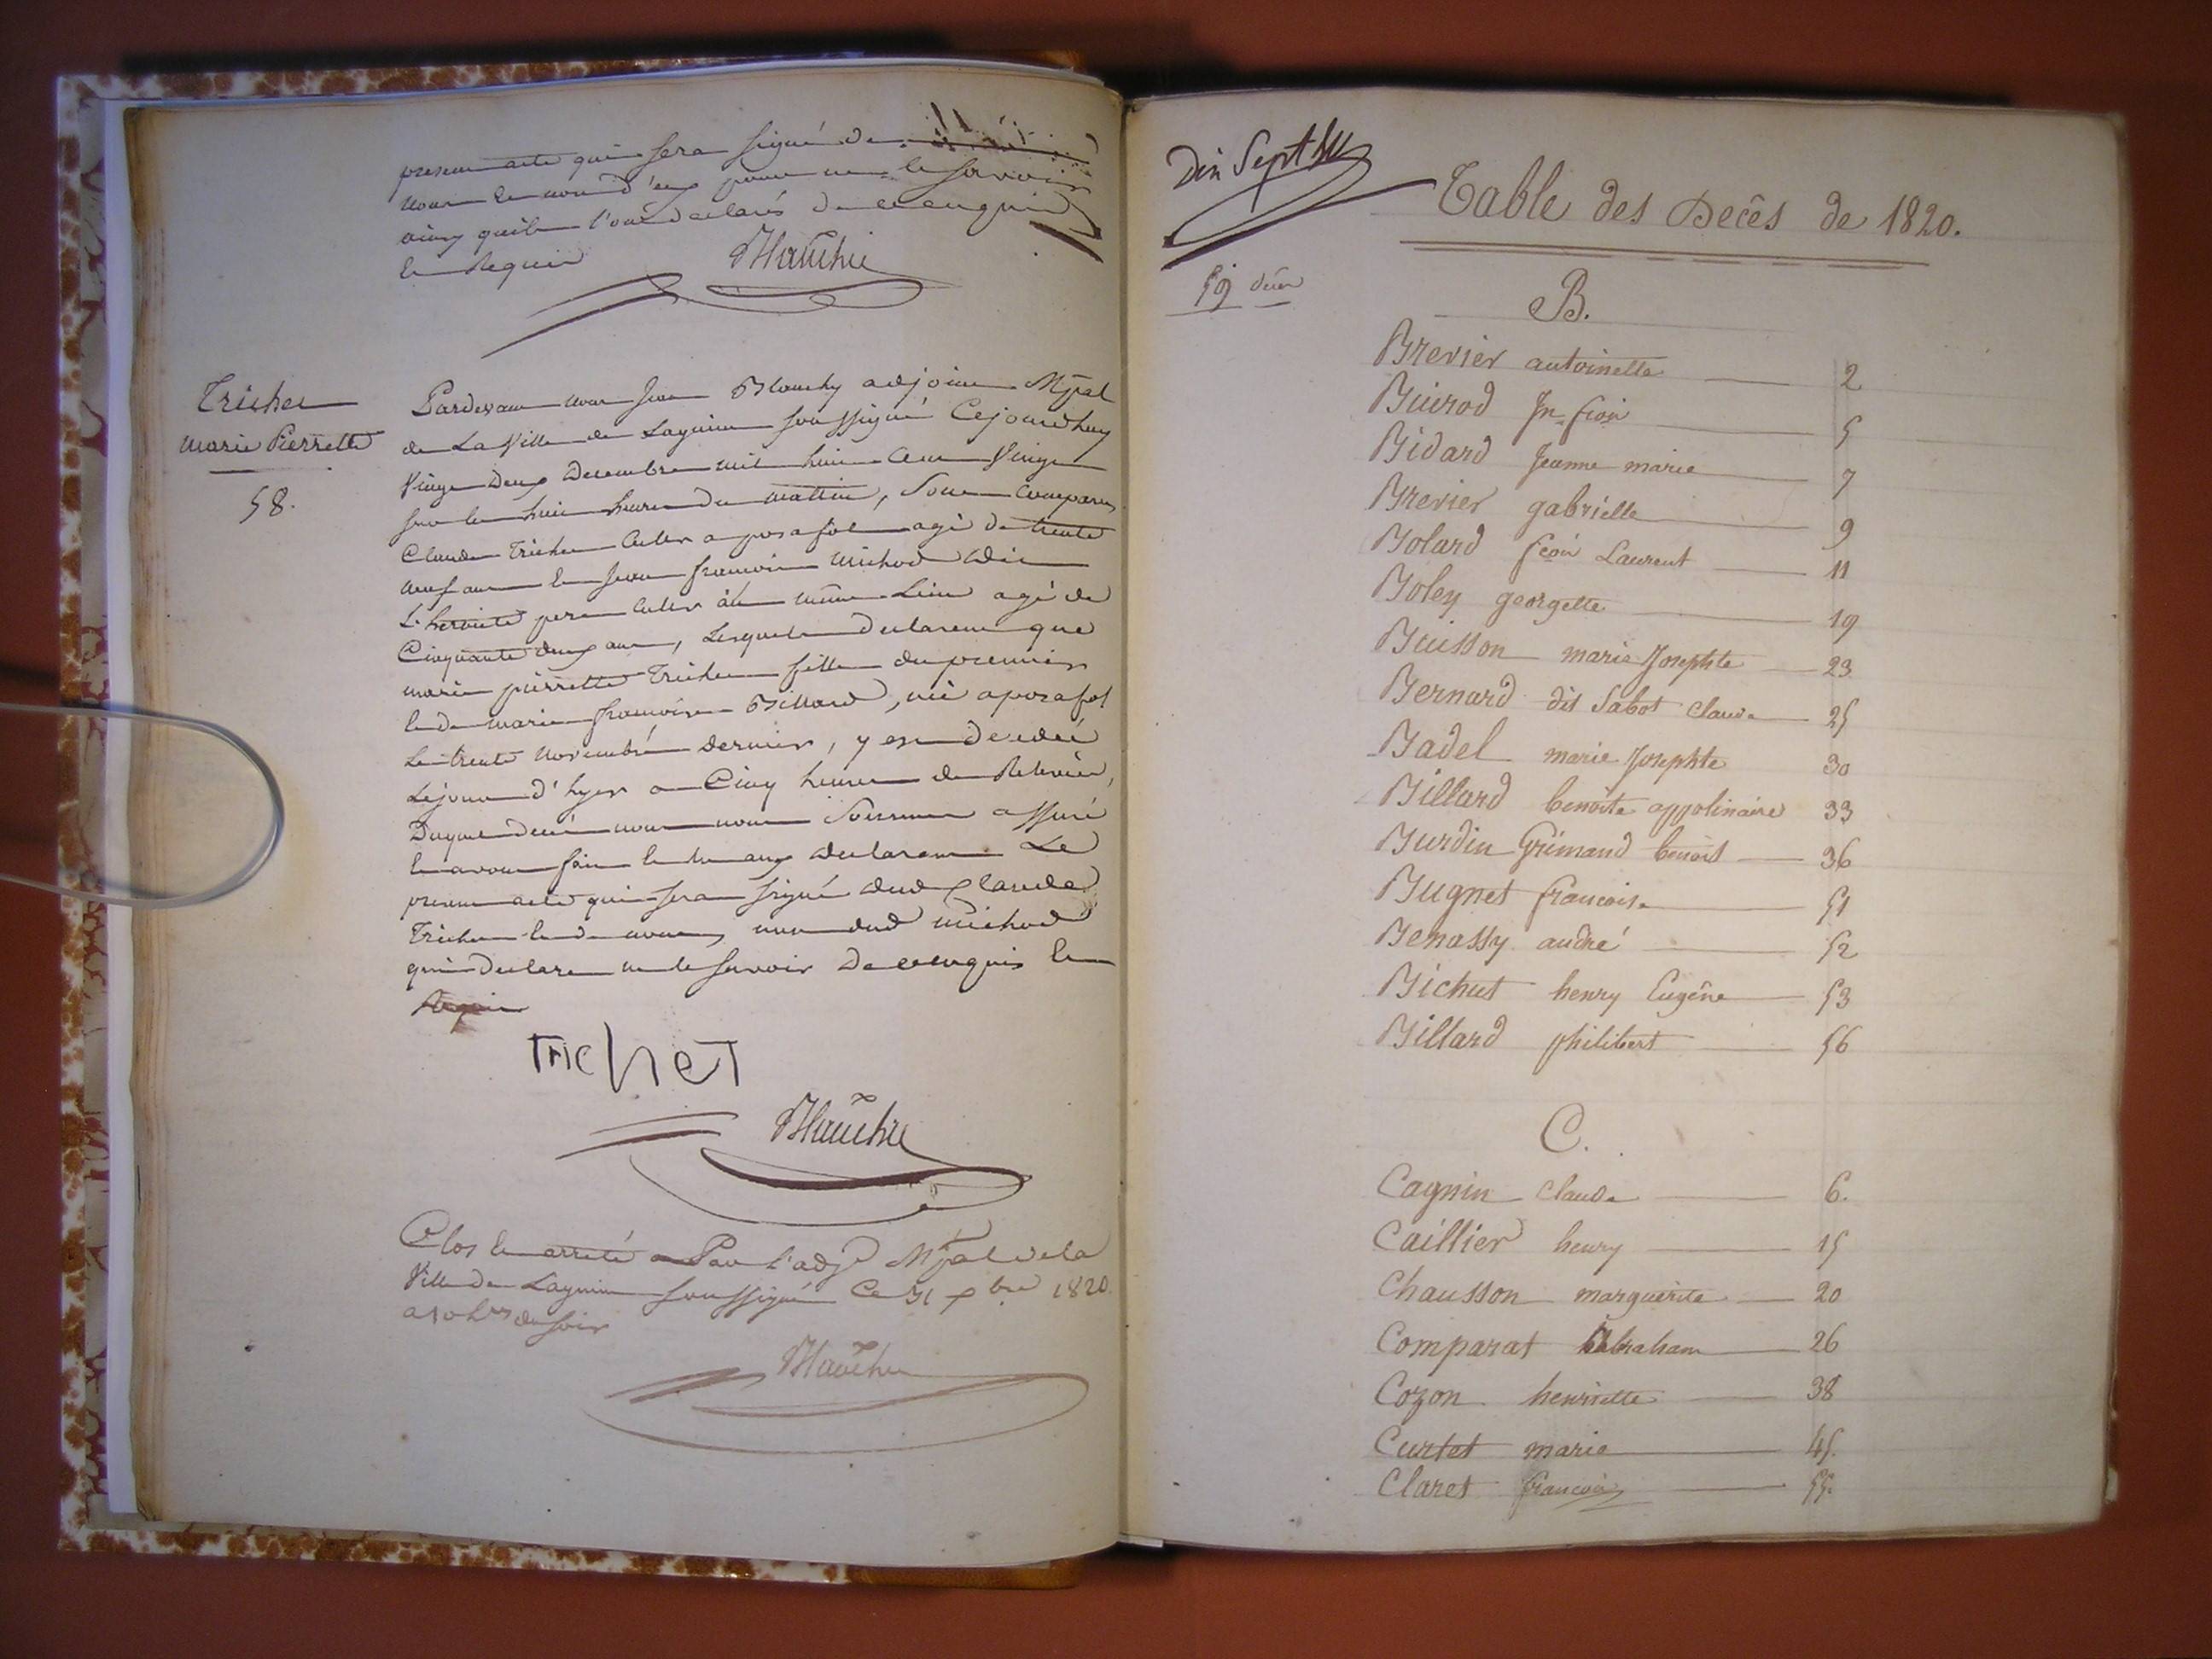 present acte qui sera signé de
nous et non d'eux pour ne le savoir
ainsy qu'ils l'ont déclarés de ce enquis
et Requis
Blanchy
Trichet
marie Pierrette
58.
Pardevant nous Jean Blanchy adjoint Mpal
de La Ville de Lagnieu soussigné Cejourdhuy
Vingt Deux Decembre mil huit Cent Vingt
sur les huit heures du mattin, Sont Comparus
Claude Trichet culter a posafol agé de trente
neuf ans et Jean francois michod dit
L'hermite pere culter au même Lieu agé de
Cinquante deux ans, Lesquels declarent que
marie pierrette Trichet fille du premier
et de marie francoise Billard, née a posafol
Le trente novembre dernier, y est decedée
Le jour d'hyer a Cinq heures de Relevée,
Duquel decés nous nous Sommes assuré
et avons fait et lu aux declarans Le
present acte qui sera signé dud Claude
Trichet et de nous, non dud michod
qui declare ne le savoir de ce enquis et
Requis
TRICHET
Blanchy
Clos et arreté Par L'adjt Mpal de la
Ville de Lagnieu soussigné Ce 31 Xbre 1820
a 10 hres du soir
Blanchy
Dix Sept
59 deces
Table des Decês de 1820.
B.
Brevier antoinette 2
Buirod Jn fcois 5
Bidard Jeanne marie 7
Brevier gabrielle 9
Bolard fcois Laurent 11
Boley georgette 19
Buisson marie Josephte 23
Bernard dit Sabot Claude 25
Badel marie Josephte 30
Billard benoite appolinaire 33
Burdin Grimand benoit 36
Bugnet francoise 51
Benassy andré 52
Bichut henry Eugêne 53
Billard philibert 56
C.
Cagnin Claude 6.
Caillier henry 15
Chausson marguerite 20
Comparat abraham 26
Cozon henriette 38
Curtet marie 45.
Claret francois 55.